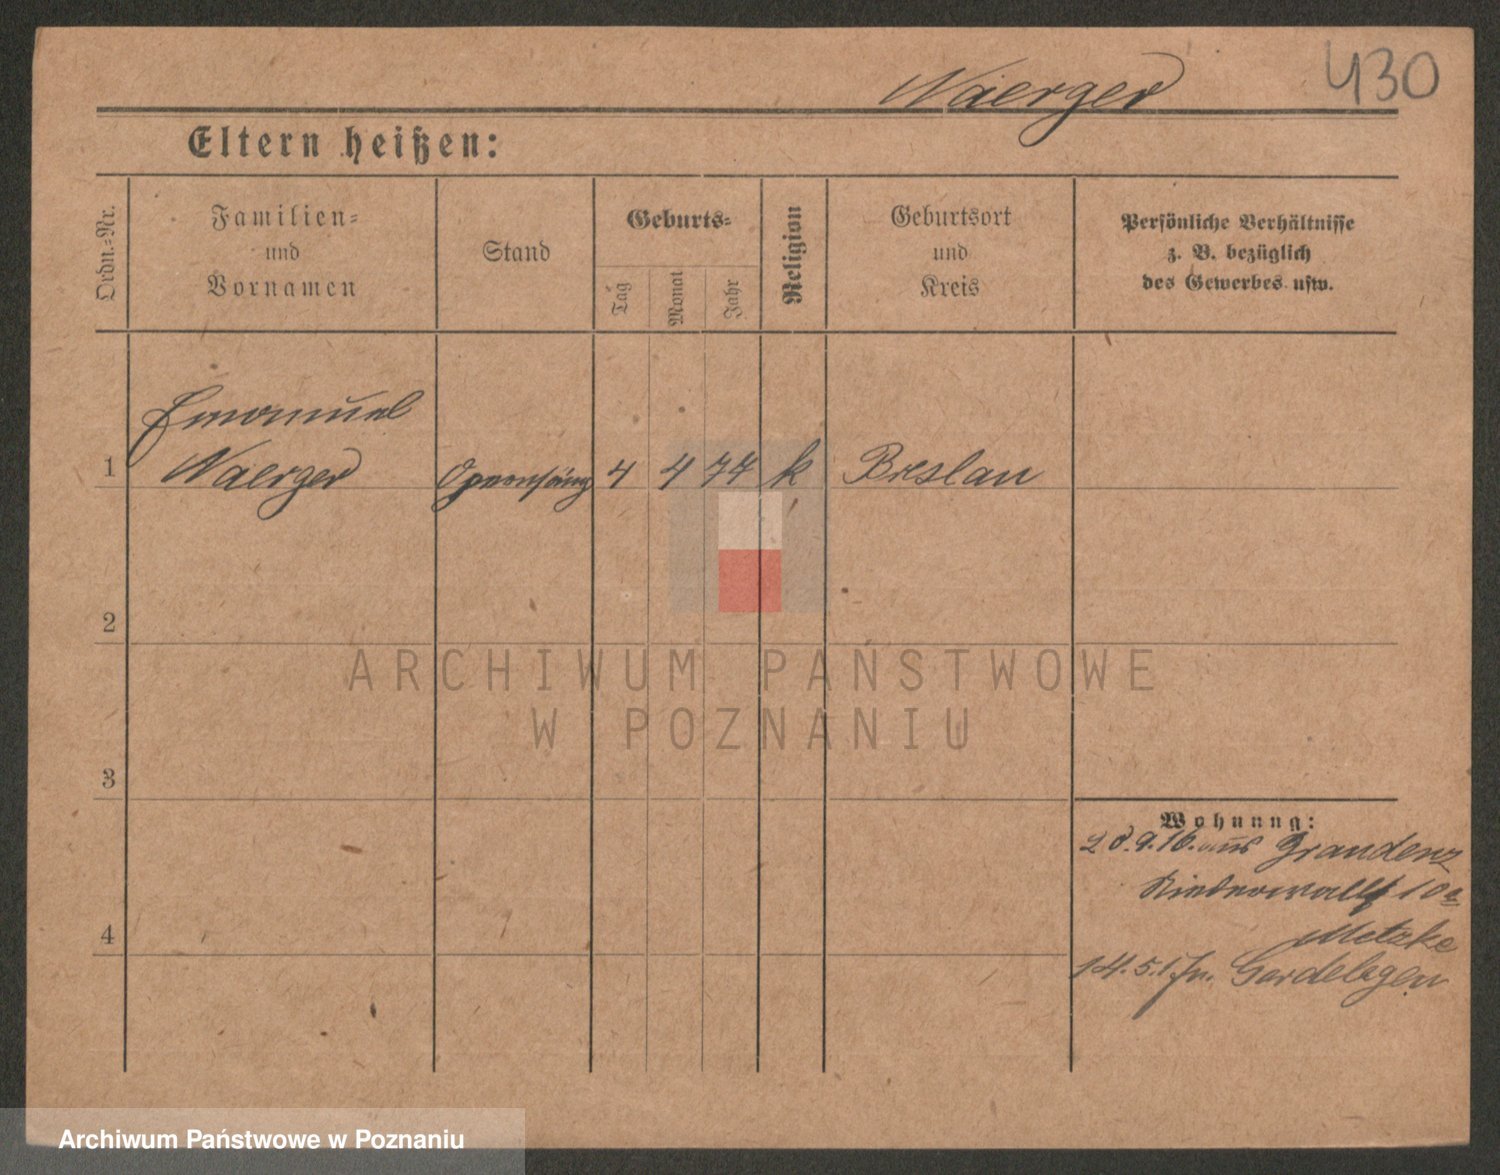 Naerger 430
Eltern heißen:
Ordn.-Nr.
Familien-
und
Vornamen
Stand
Geburts-
Tag
Monat
Jahr
Religion
Geburtsort
und
Kreis
Persönliche Verhältnisse
z. B. bezüglich
des Gewerbes usw.
Emanuel
1 Naerger Opernsäng 4 4 77 k Breslau
2
3
4
Wohnung:
28.9.16. aus Graudenz
10a
Metzke
14.5.17 n. Gardelegen
ARCHIWUM PAŃSTWOWE
W POZNANIU
Archiwum Państwowe w Poznaniu